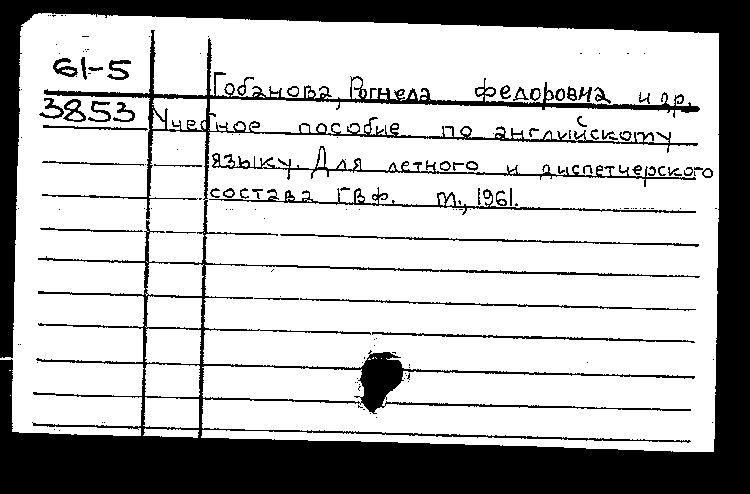 61-5
Гобанова, Рогнеда Федоровна и др.
3853 Учебное пособие по английскому
языку. Для летного и диспетчерского
состава ГВФ. М., 1961.